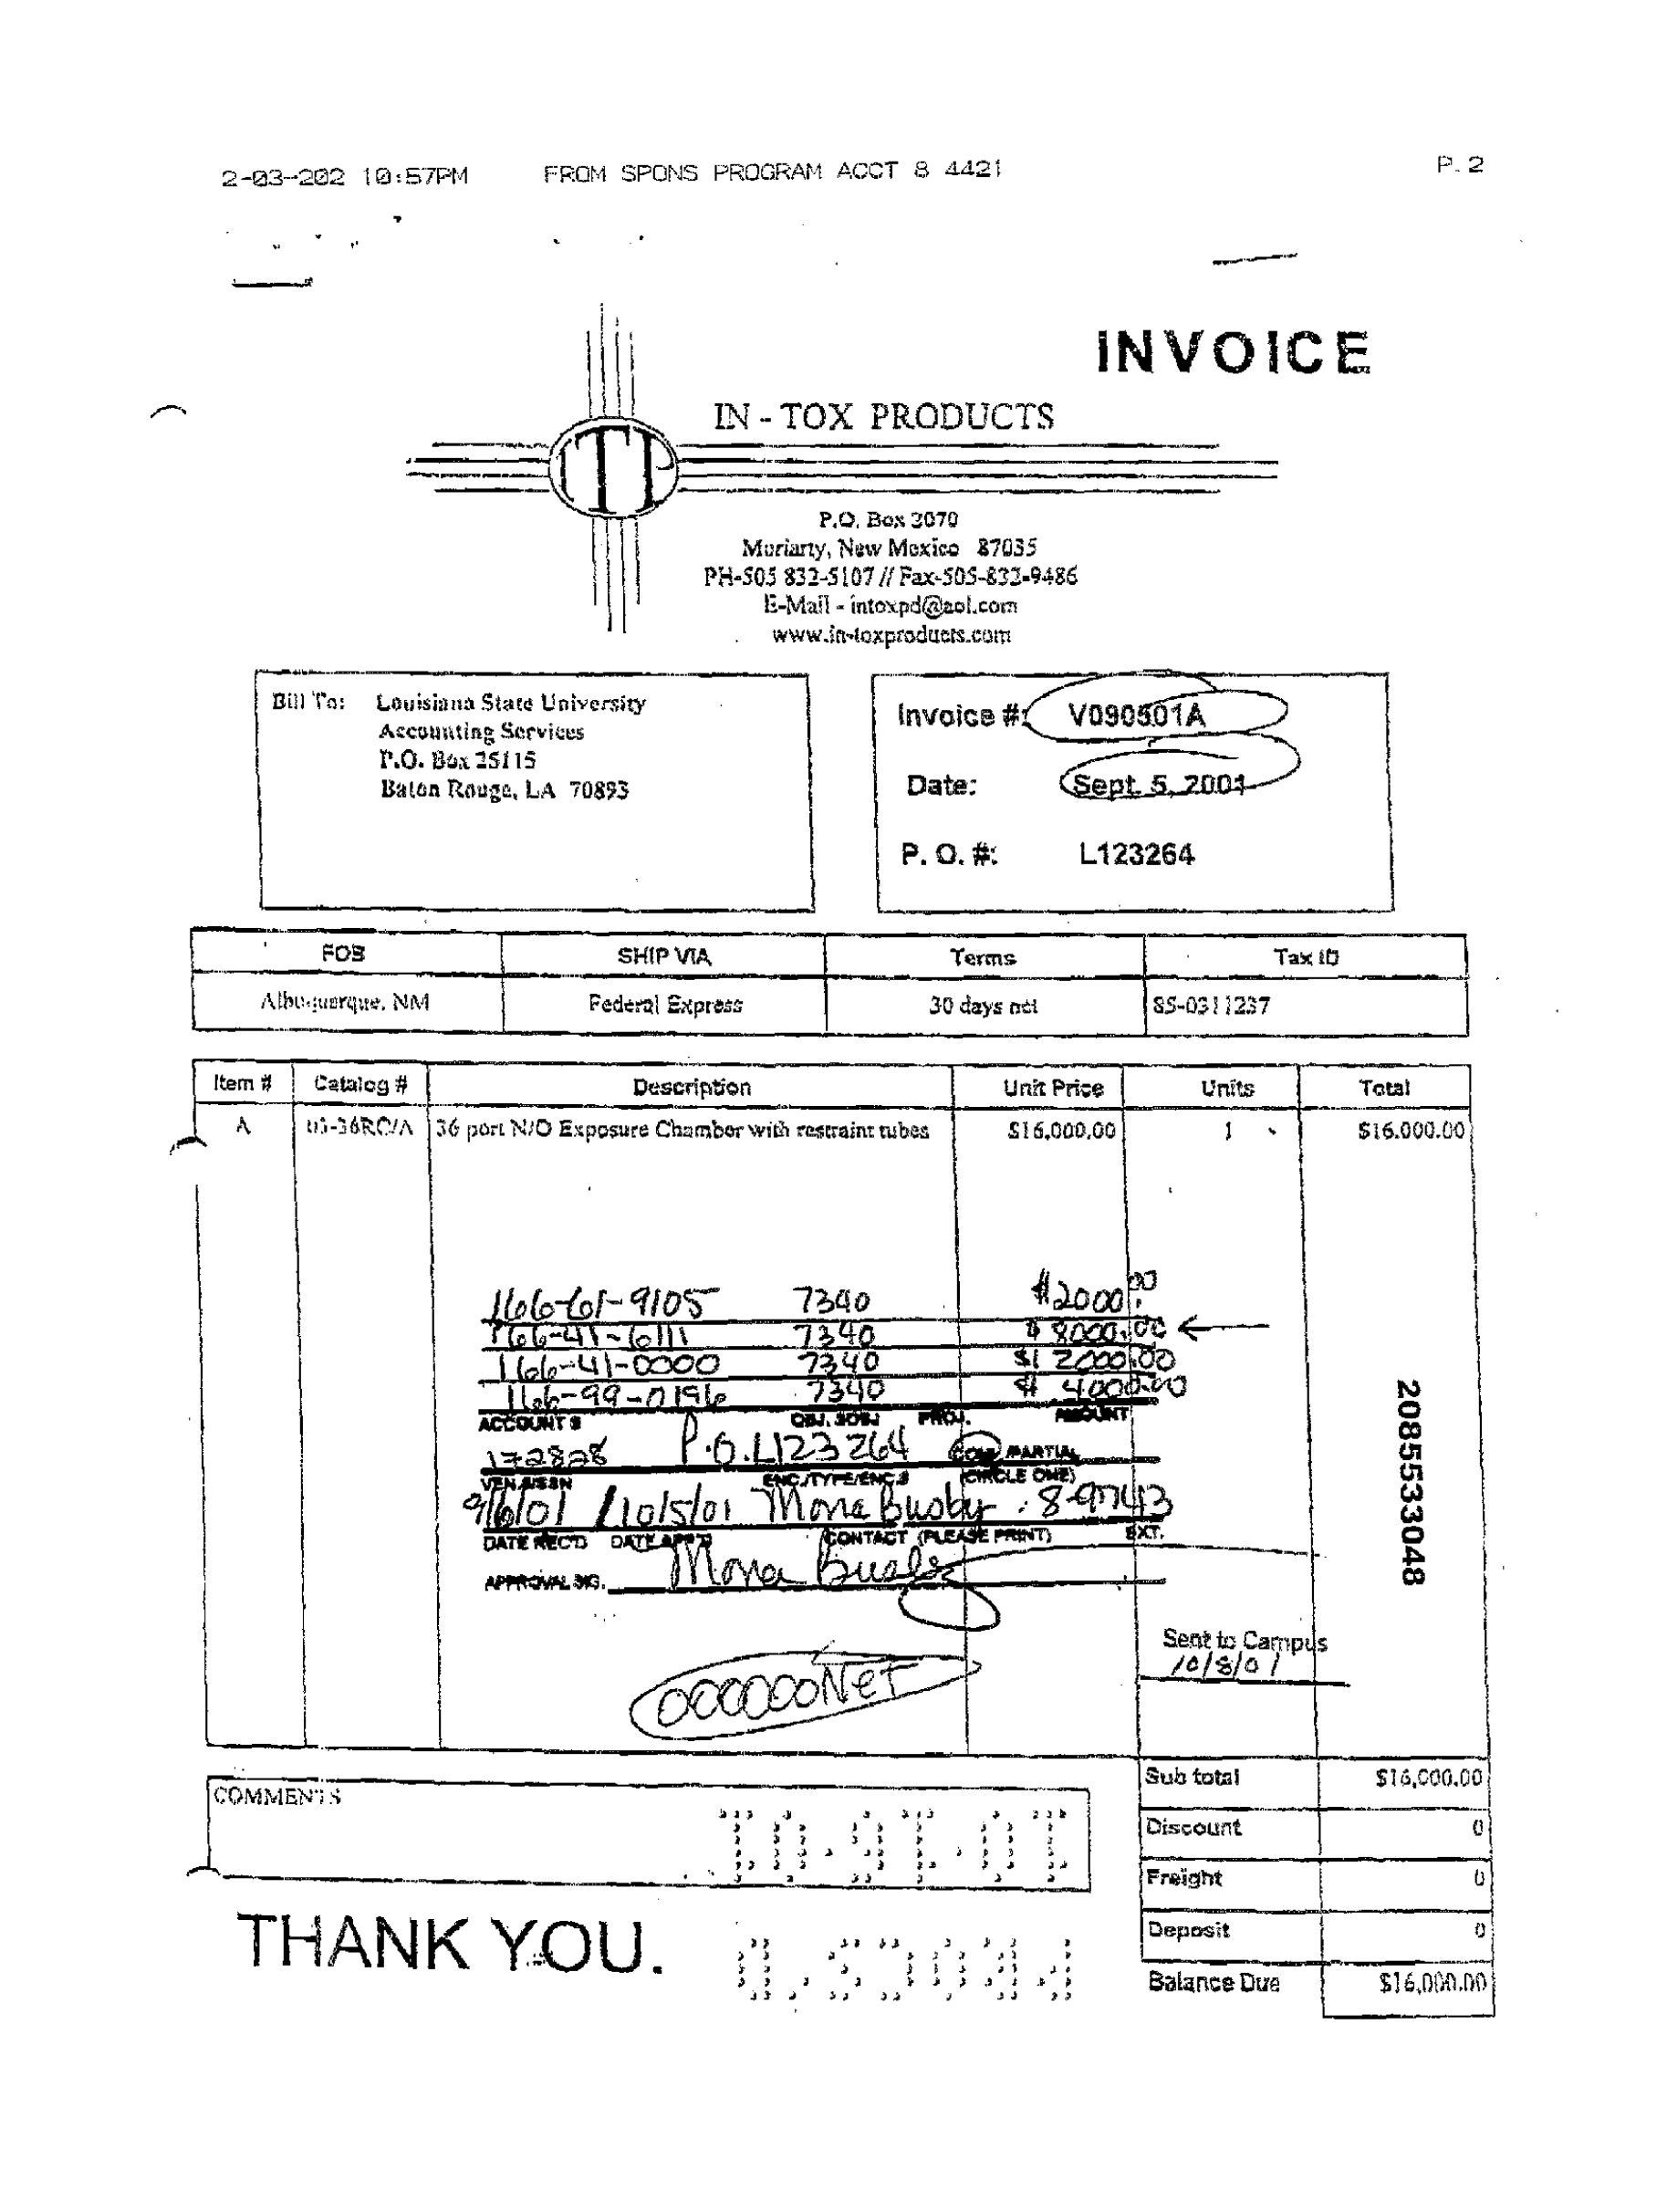 2-03-202 10:57PM FROM SPONS PROGRAM ACCT 8 4421 P. 2
INVOICE
IN - TOX PRODUCTS
P.O. Box 2070
Moriarty, New Mexico 87035
PH-505 832-5107 // Fax-505-832-9486
E-Mail - intoxpd@aol.com
www.in-toxproducts.com
Bill To: Louisiana State University
Accounting Services
P.O. Box 25115
Baton Rouge, LA 70893
Invoice #: V090501A
Date: Sept. 5, 2001
P. O. #: L123264
FOB SHIP VIA Terms Tax ID
Albuquerque, NM Federal Express 30 days net 85-0311237
Item # Catalog # Description Unit Price Units Total
A 36 port N/O Exposure Chamber with restraint tubes $16,000.00 1 $16,000.00
166-61-9105 7340 $2000.00
166-41-6111 7340 $8000.00
166-41-0000 7340 $12000.00
166-99-0196 7340 $4000.00
ACCOUNT # OBJ. SOBJ PROJ. AMOUNT
172828 P.O. L123264 COMP PARTIAL
VEN #/SSN ENC./TYPE/ENC.# (CIRCLE ONE)
9/6/01 10/5/01 Mona Busby 8-9743
DATE REC'D DATE APP'D CONTACT (PLEASE PRINT) EXT.
APPROVAL SIG. Mona Busby
2085533048
Sent to Campus
10/8/01
000000Net
COMMENTS
10-9T-01
THANK YOU.
Sub total $16,000.00
Discount 0
Freight 0
Deposit 0
Balance Due $16,000.00